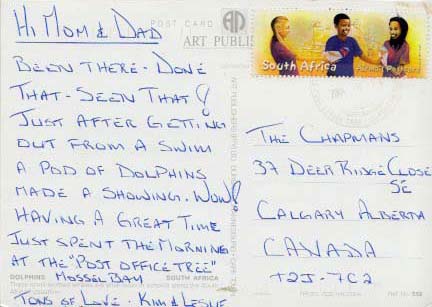 Hi Mom & Dad
POST CARD
ART PUBLIS
Been there - Done
that - Seen that!
Just after getting
out from a swim
a pod of dolphins
made a showing. Wow!
Having a great time
Just spent the morning
at the "Post Office Tree"
DOLPHINS SOUTH AFRICA
Mossel Bay
Tons of Love - Kim & Leslie
South Africa
The Chapmans
37 Deer Ridge Close
SE
Calgary Alberta
CANADA
T2J-7C2